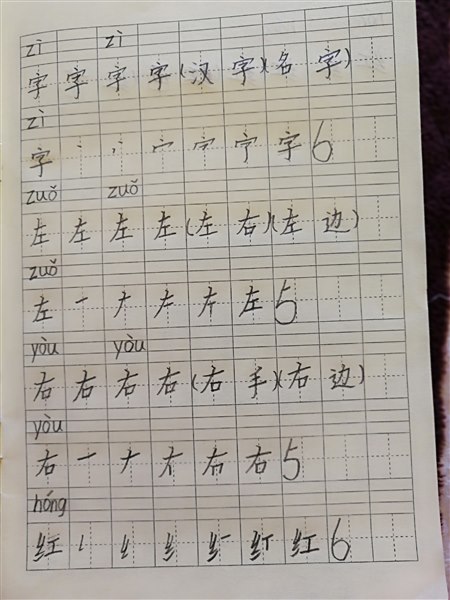 zì zì
字 字 字 字 (汉 字)(名 字)
zì
字 丶 丷 宀 宁 字 6
zuǒ zuǒ
左 左 左 左 (左 右)(左 边)
zuǒ
左 一 ナ 左 5
yòu yòu
右 右 右 右 (右 手)(右 边)
yòu
右 一 ナ 右 右 5
hóng
红 纟 红 红 6